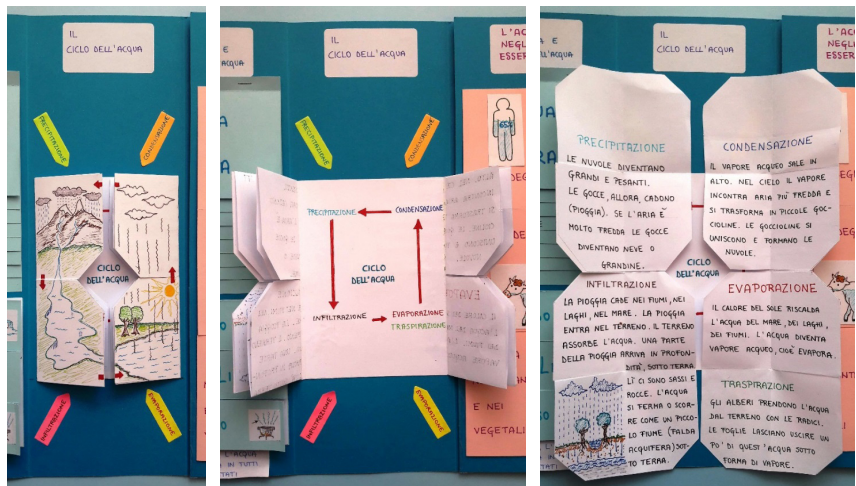 IL
CICLO DELL'ACQUA
PRECIPITAZIONE
CONDENSAZIONE
CICLO
DELL'ACQUA
INFILTRAZIONE
EVAPORAZIONE
E
ACQUA
IL
CICLO DELL'ACQUA
L'AC
NEGL
ESSER
PRECIPITAZIONE
CONDENSAZIONE
65%
PRECIPITAZIONE
CONDENSAZIONE
CICLO
DELL'ACQUA
INFILTRAZIONE
EVAPORAZIONE
TRASPIRAZIONE
INFILTRAZIONE
EVAPORAZIONE
E NEI
VEGETALI
L'ACQUA
IN TUTTI
STATI
A E
ACQUA
IL
CICLO DELL'ACQUA
L'AC
NEGL
ESSER
PRECIPITAZIONE
LE NUVOLE DIVENTANO
GRANDI E PESANTI.
LE GOCCE, ALLORA, CADONO
(PIOGGIA). SE L'ARIA È
MOLTO FREDDA LE GOCCE
DIVENTANO NEVE O
GRANDINE.
CONDENSAZIONE
IL VAPORE ACQUEO SALE IN
ALTO. NEL CIELO IL VAPORE
INCONTRA ARIA PIU' FREDDA E
SI TRASFORMA IN PICCOLE GOC-
CIOLINE. LE GOCCIOLINE SI
UNISCONO E FORMANO LE
NUVOLE.
CICLO
DELL'ACQUA
INFILTRAZIONE
LA PIOGGIA CADE NEI FIUMI, NEI
LAGHI, NEL MARE. LA PIOGGIA
ENTRA NEL TERRENO. IL TERRENO
ASSORBE L'ACQUA. UNA PARTE
DELLA PIOGGIA ARRIVA IN PROFON-
DITA', SOTTO TERRA.
LÌ CI SONO SASSI E
ROCCE. L'ACQUA
SI FERMA O SCOR-
RE COME UN PICCO-
LO FIUME (FALDA
ACQUIFERA) SOT-
TO TERRA.
EVAPORAZIONE
IL CALORE DEL SOLE RISCALDA
L'ACQUA DEL MARE, DEI LAGHI,
DEI FIUMI. L'ACQUA DIVENTA
VAPORE ACQUEO, CIOÈ EVAPORA.
TRASPIRAZIONE
GLI ALBERI PRENDONO L'ACQUA
DAL TERRENO CON LE RADICI.
LE FOGLIE LASCIANO USCIRE UN
PO' DI QUEST'ACQUA SOTTO
FORMA DI VAPORE.